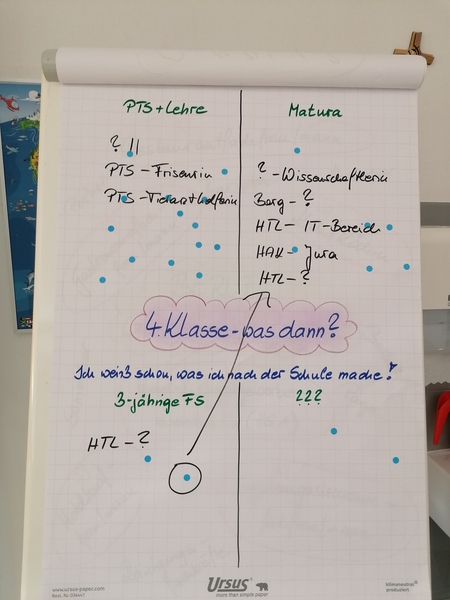 PTS + Lehre
? ||
PTS - Friseurin
PTS - Tierarzthelferin
Matura
? - Wissenschaftlerin
Borg - ?
HTL - IT-Bereich
HAK - } Jura
HTL - ?
4. Klasse - was dann?
Ich weiß schon, was ich nach der Schule mache!
3-jährige FS
HTL - ?
???
www.ursus-paper.com
Ursus
more than simple paper
klimaneutral
produziert